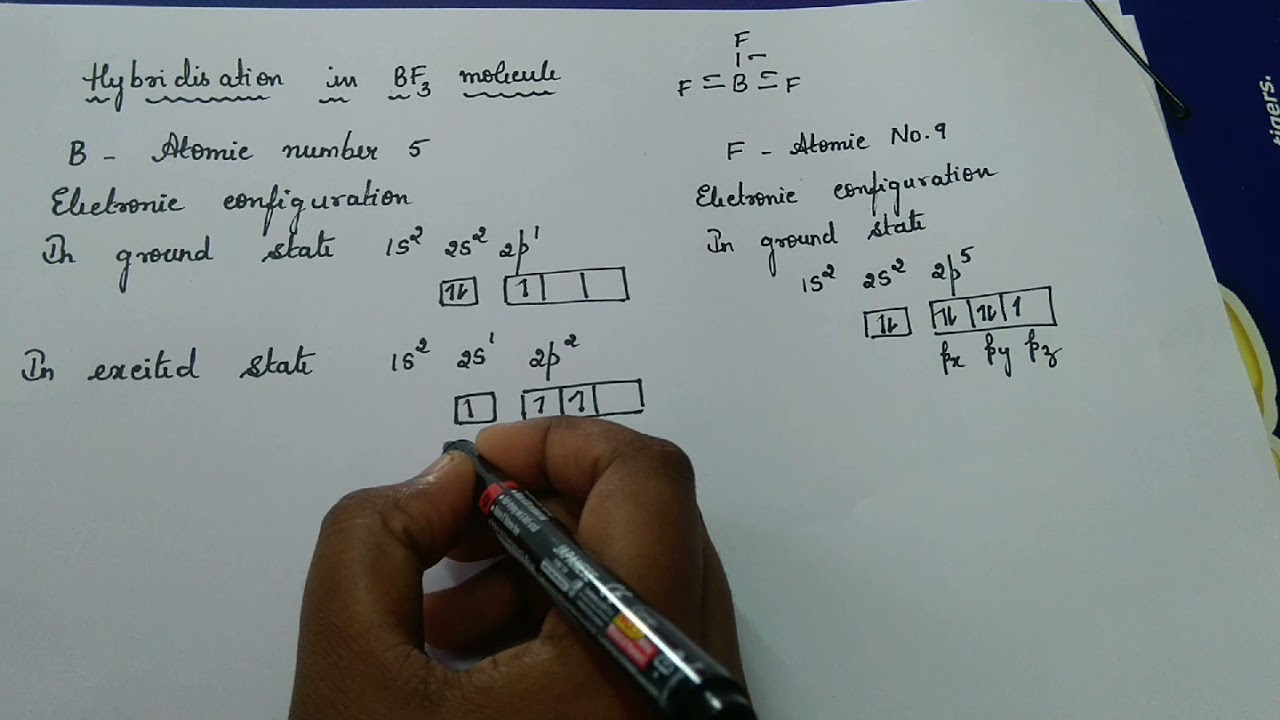 Hybridisation in BF₃ molecule
B - Atomic number 5
Electronic configuration
In ground state 1s² 2s² 2p¹
⥮ 1
In excited state 1s² 2s¹ 2p²
1 1 1
F
F = B = F
F - Atomic No. 9
Electronic configuration
In ground state
1s² 2s² 2p⁵
⥮ ⥮ ⥮ 1
px py pz